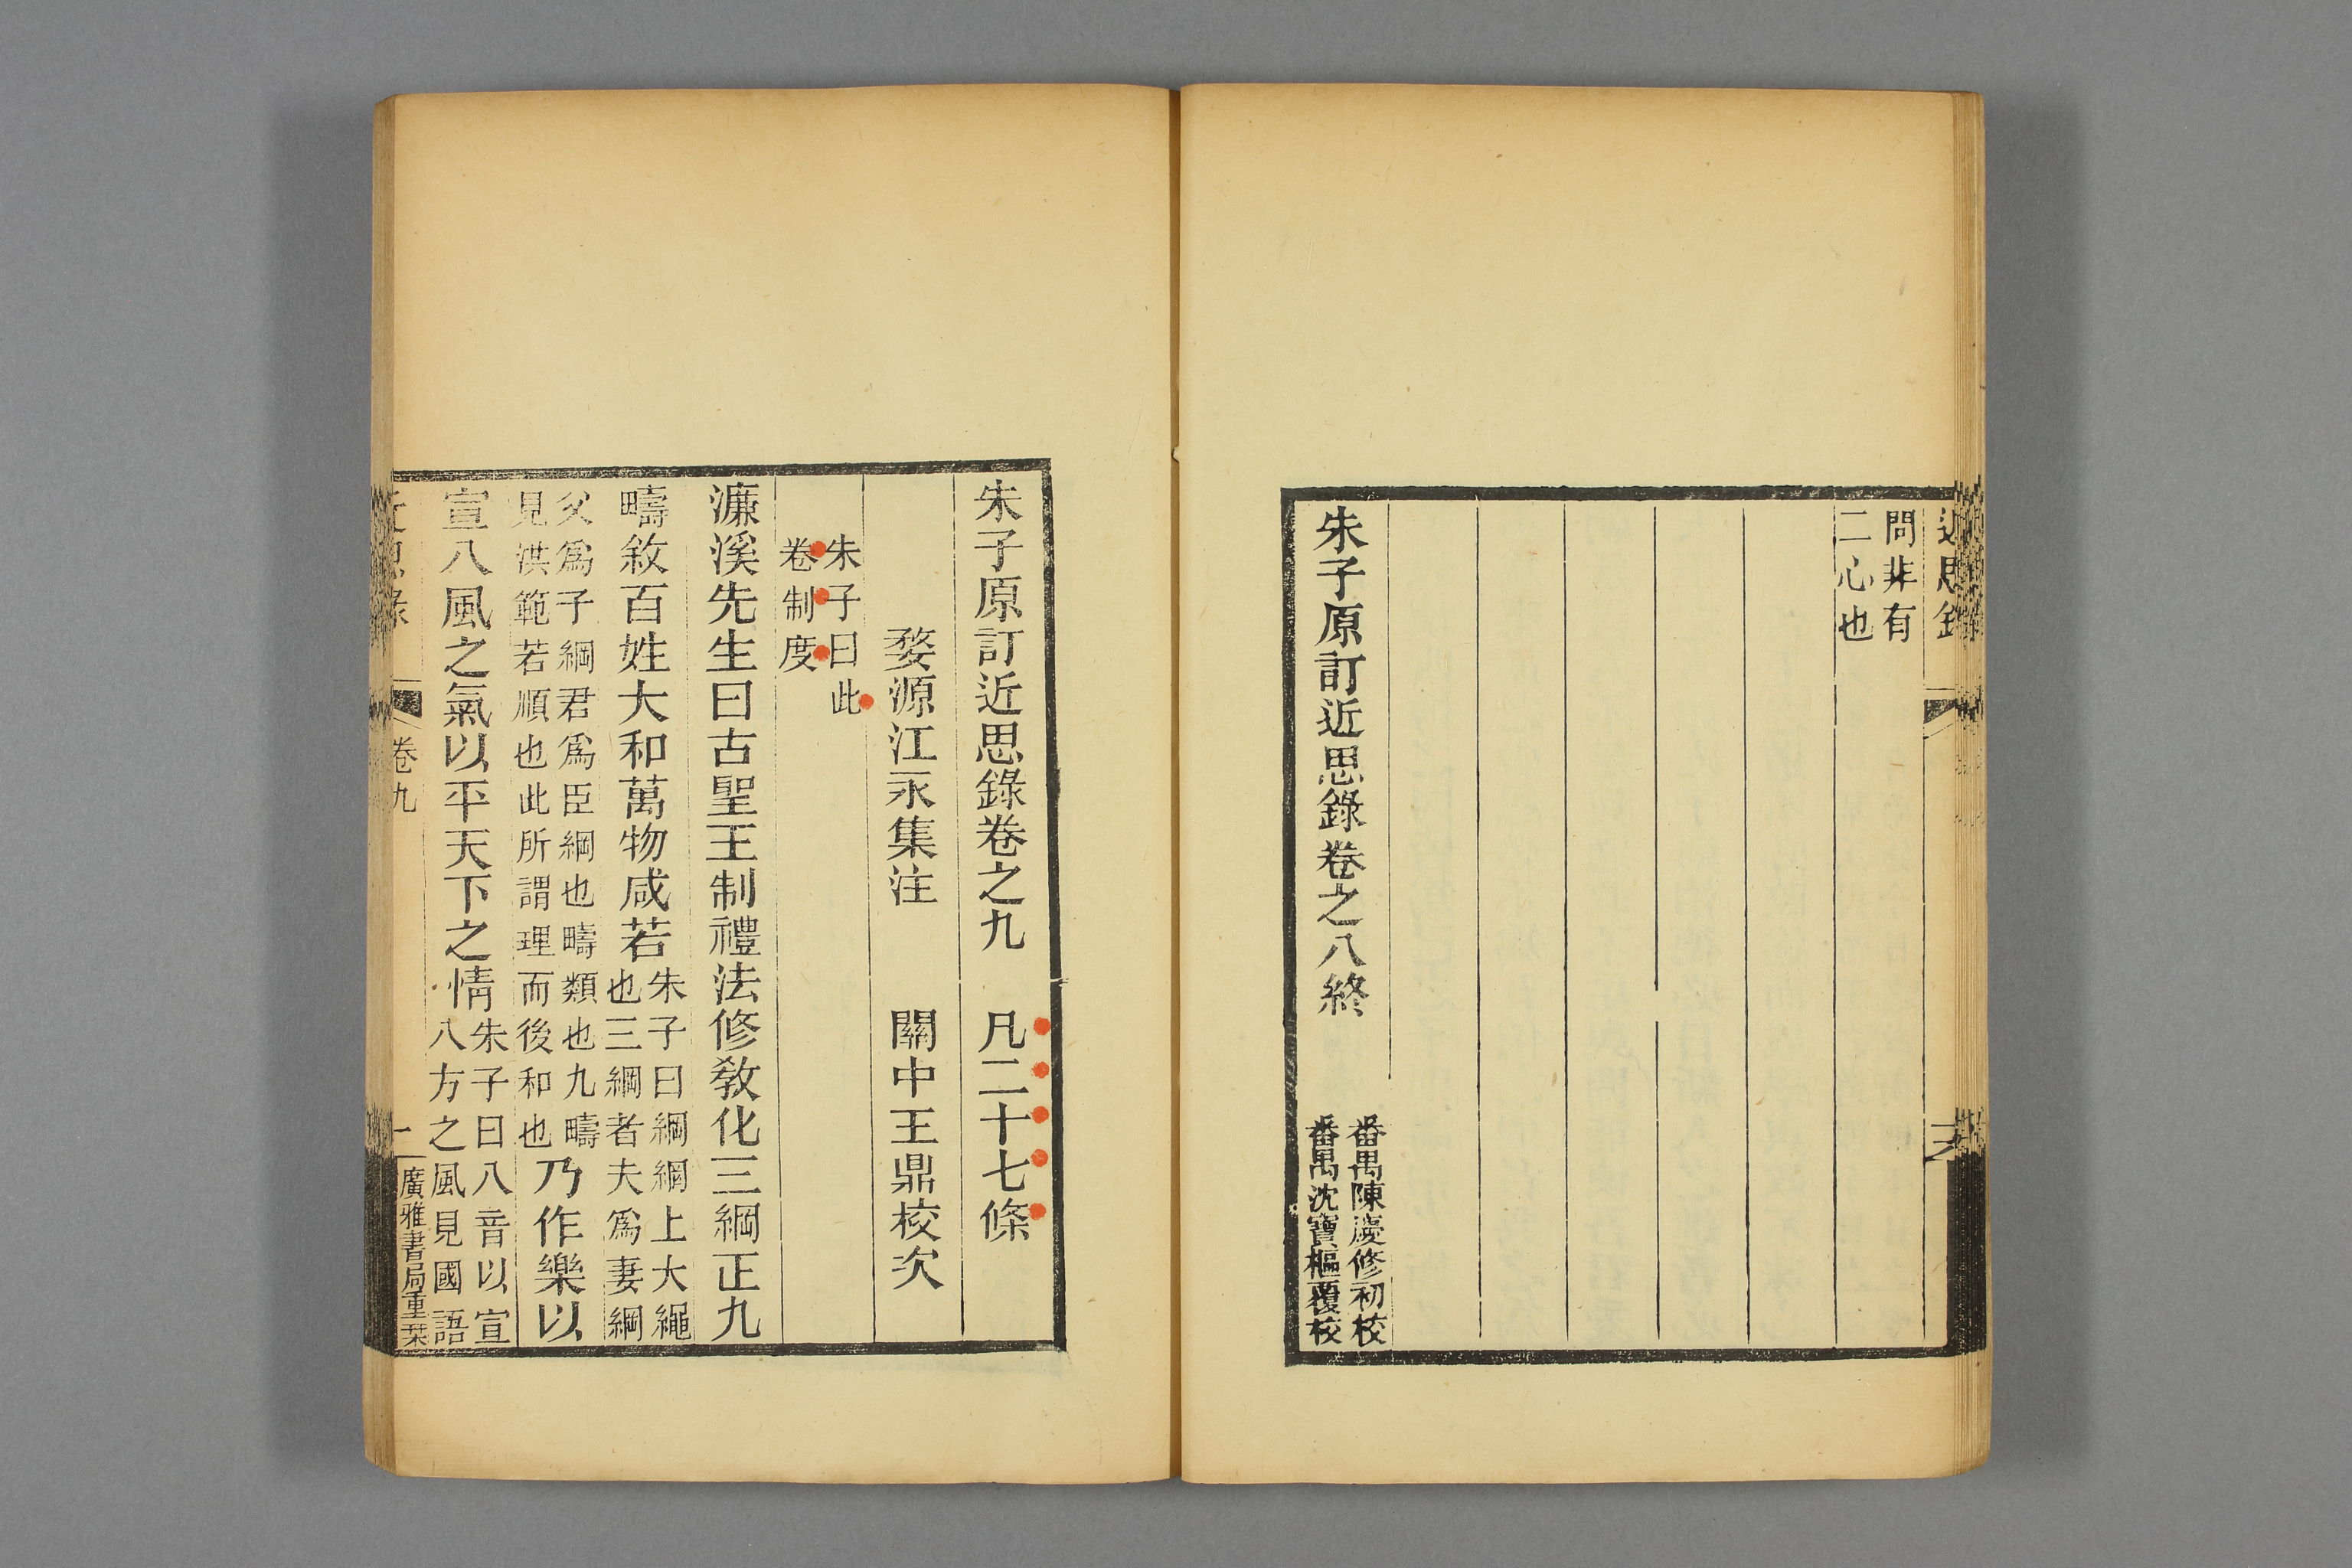 近思錄
問非有
二心也
朱子原訂近思錄卷之八終
番禺陳慶修初校
番禺沈寶樞覆校
朱子原訂近思錄卷之九 凡二十七條
婺源江永集注 關中王鼎校次
朱子曰此
卷制度
濂溪先生曰古聖王制禮法修敎化三綱正九
疇敘百姓大和萬物咸若
朱子曰綱綱上大繩
也三綱者夫爲妻綱
父爲子綱君爲臣綱也疇類也九疇
見洪範若順也此所謂理而後和也
乃作樂以
宣八風之氣以平天下之情
朱子曰八音以宣
八方之風見國語
近思錄 卷九 一 廣雅書局重栞